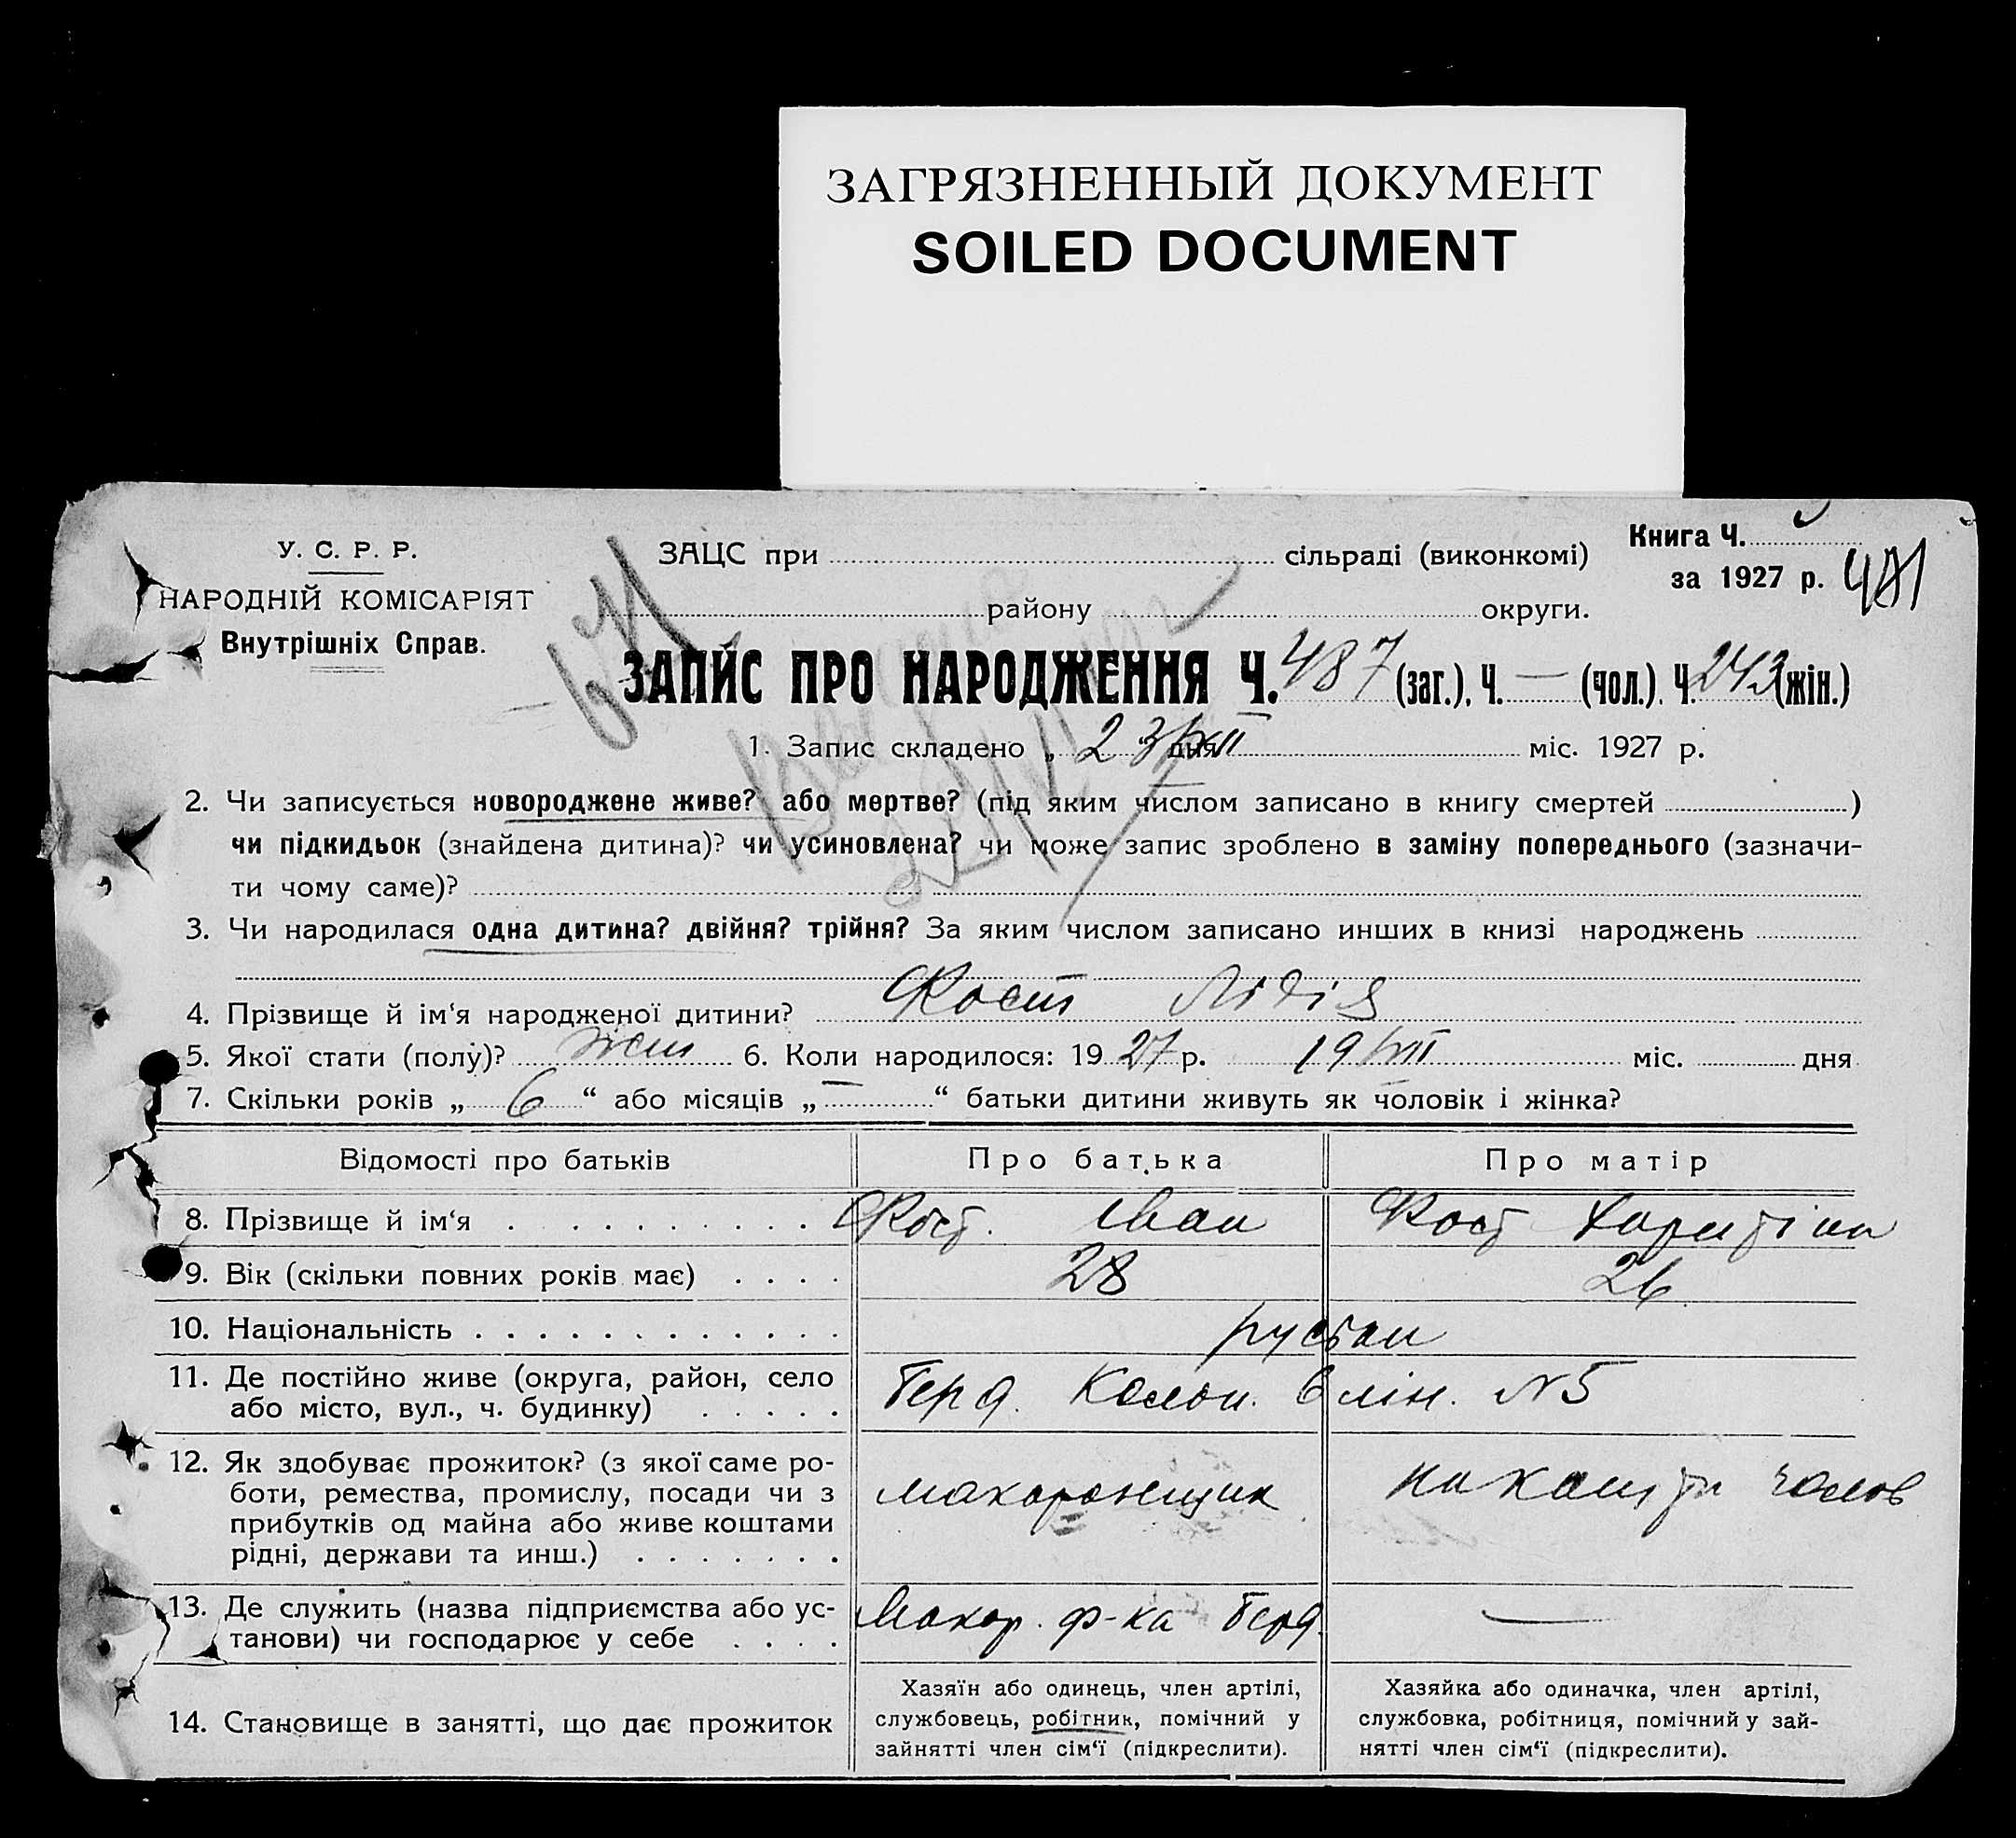 ЗАГРЯЗНЕННЫЙ ДОКУМЕНТ
SOILED DOCUMENT
У. С. Р. Р.
НАРОДНІЙ КОМІСАРІЯТ
Внутрішніх Справ.
ЗАЦС при сільраді (виконкомі)
району округи.
Книга Ч.
за 1927 р.
ЗАПИС ПРО НАРОДЖЕННЯ Ч. 487 (заг.), Ч. — (чол.). Ч. 243 (жін.)
1. Запис складено „ 23/XII дня міс. 1927 р.
2. Чи записується новороджене живе? або мертве? (під яким числом записано в книгу смертей )
чи підкидьок (знайдена дитина)? чи усиновлена? чи може запис зроблено в заміну попереднього (зазначи-
ти чому саме)?
3. Чи народилася одна дитина? двійня? трійня? За яким числом записано инших в книзі народжень
4. Прізвище й ім‘я народженої дитини? Фост Лідія
5. Якої стати (полу)? жен 6. Коли народилося: 1927 р. 19/XII міс. дня
7. Скільки років „ 6 “ або місяців „ — “ батьки дитини живуть як чоловік і жінка?
Відомості про батьків Про батька Про матір
8. Прізвище й ім‘я Фост. Иван Фост Харитіна
9. Вік (скільки повних років має) 28 26
10. Національність руськи
11. Де постійно живе (округа, район, село
або місто, вул., ч. будинку) Берд. Колон. 6 лін. N5
12. Як здобуває прожиток? (з якої саме ро-
боти, ремества, промислу, посади чи з
прибутків од майна або живе коштами
рідні, держави та инш.) макаронщик на кошти чолов
13. Де служить (назва підприємства або ус-
танови) чи господарює у себе Макар. ф-ка Берд. —
14. Становище в занятті, що дає прожиток
Хазяїн або одинець, член артілі,
службовець, робітник, помічний у
зайнятті член сім‘ї (підкреслити).
Хазяйка або одиначка, член артілі,
службовка, робітниця, помічний у зай-
нятті член сім‘ї (підкреслити).